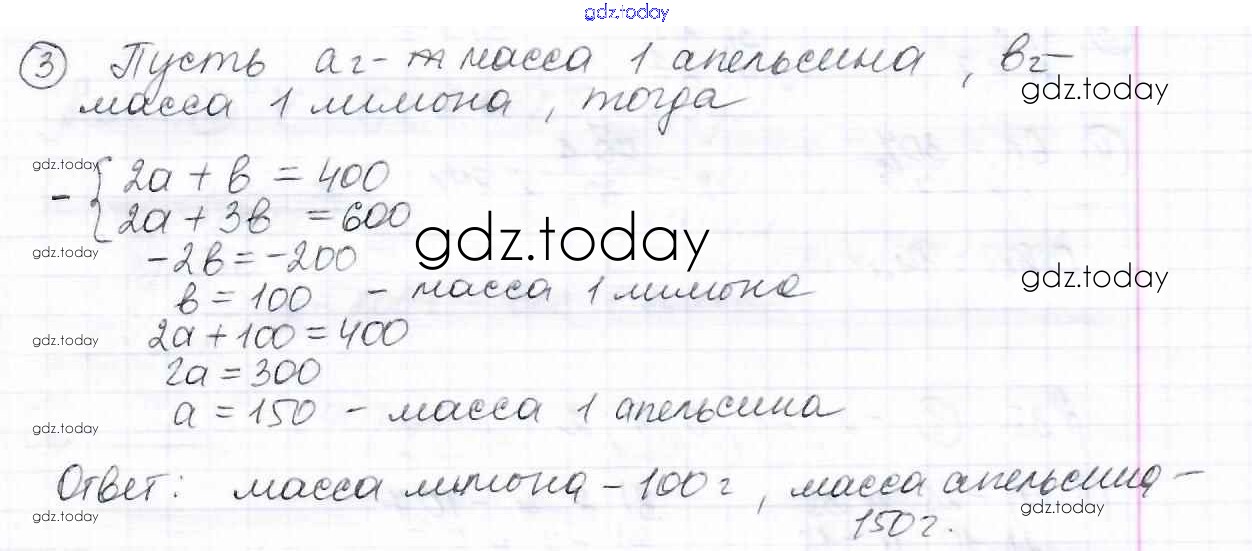 gdz.today
③ Пусть a г - масса 1 апельсина, в г -
gdz.today
масса 1 лимона, тогда
gdz.today
- { 2a + в = 400
2a + 3в = 600
gdz.today
gdz.today
-2в = -200
gdz.today
в = 100 - масса 1 лимона
2a + 100 = 400
gdz.today
2a = 300
a = 150 - масса 1 апельсина
gdz.today
Ответ: масса лимона - 100 г, масса апельсина -
gdz.today
150 г.
gdz.today